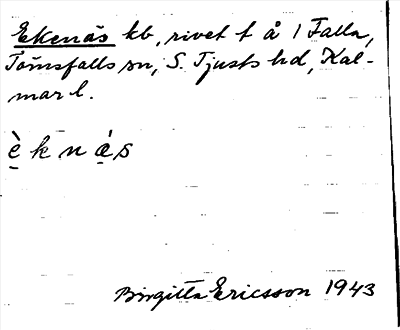 Ekenäs kb, rivet t å 1 Falla,
Törnsfalls sn, S. Tjusts hd, Kal-
mar l.
è̱ k n á̱ s
Birgitta Ericsson 1943